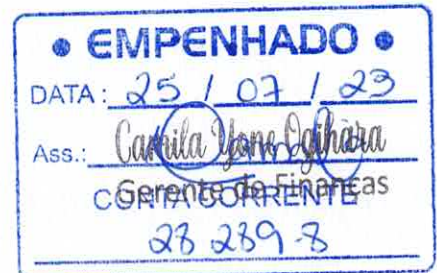 • EMPENHADO •
DATA: 25 / 07 / 23
Ass.: Camila Yone Ogihara
Gerente de Finanças
CONTA CORRENTE
28 289-8